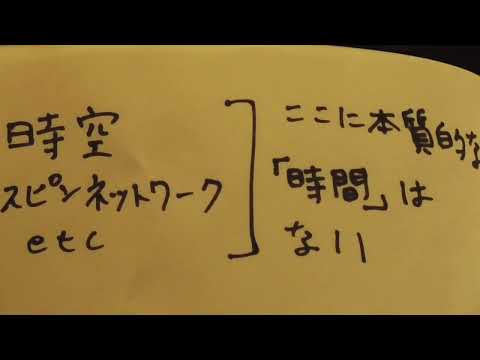 時空
スピンネットワーク
etc
ここに本質的な
「時間」は
ない